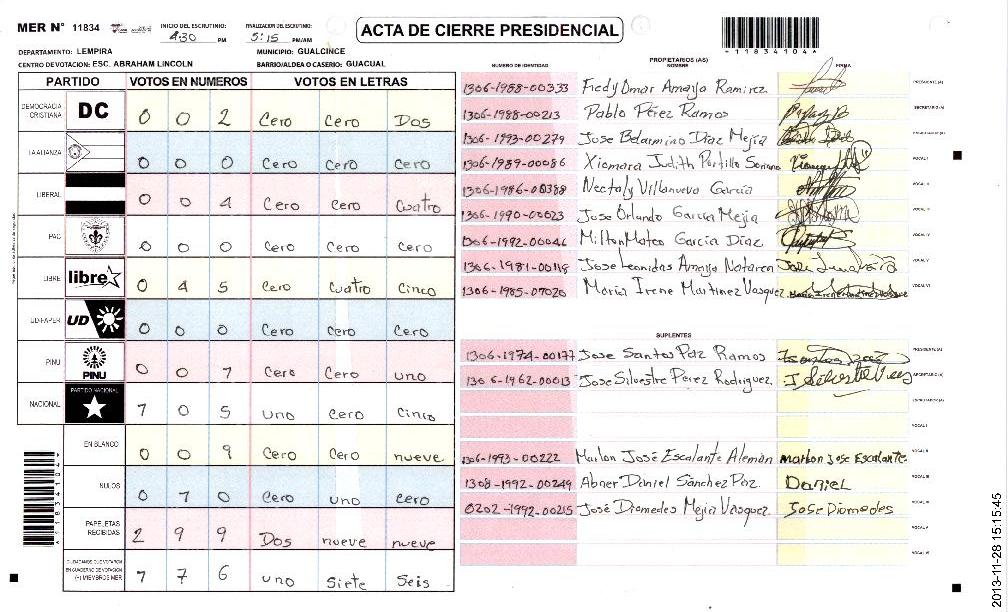 MER N° 11834
INICIO DEL ESCRUTINIO:
4:30 PM
FINALIZACION DEL ESCRUTINIO:
5:15 PM/AM
ACTA DE CIERRE PRESIDENCIAL
*1183410 4*
DEPARTAMENTO: LEMPIRA
MUNICIPIO: GUALCINCE
CENTRO DE VOTACION: ESC. ABRAHAM LINCOLN
BARRIO/ALDEA O CASERIO: GUACUAL
PARTIDO VOTOS EN NUMEROS VOTOS EN LETRAS
DEMOCRACIA CRISTIANA DC 0 0 2 Cero Cero Dos
LA ALIANZA 0 0 0 Cero Cero Cero
LIBERAL 0 0 4 Cero Cero Cuatro
PAC 0 0 0 Cero Cero Cero
LIBRE libre 0 4 5 Cero Cuatro Cinco
UD-FAPER UD 0 0 0 Cero Cero Cero
PINU PINU 0 0 1 Cero Cero uno
NACIONAL PARTIDO NACIONAL 1 0 5 uno Cero Cinco
EN BLANCO 0 0 9 Cero Cero nueve
NULOS 0 1 0 Cero uno Cero
PAPELETAS RECIBIDAS 2 9 9 Dos nueve nueve
CIUDADANOS QUE VOTARON EN CUADERNO DE VOTACION (+) MIEMBROS MER 1 7 6 uno Siete Seis
NUMERO DE IDENTIDAD PROPIETARIOS (AS) NOMBRE FIRMA
1306-1988-00333 Fredy Omar Amaya Ramirez PRESIDENTE (A)
1306-1988-00213 Pablo Pérez Ramos SECRETARIO (A)
1306-1993-00279 Jose Belarmino Diaz Mejia
1306-1989-00086 Xiomara Judith Portillo Soriano VOCAL I
1306-1986-00388 Nectaly Villanueva Garcia VOCAL II
1306-1990-00023 Jose Orlando Garcia Mejia VOCAL III
1306-1992-00046 Milton Mateo Garcia Diaz VOCAL IV
1306-1981-00118 Jose Leonidas Amaya Notaren VOCAL V
1306-1985-07020 Maria Irene Martinez Vasquez Maria Irene Martinez Vasquez VOCAL VI
SUPLENTES
1306-1974-00177 Jose Santos Paz Ramos PRESIDENTE (A)
1306-1962-00013 Jose Silvestre Perez Rodriguez SECRETARIO (A)
VOCAL I
1306-1993-00222 Marlon José Escalante Alemán marlon Jose Escalante VOCAL II
1308-1992-00249 Abner Daniel Sánchez Paz Daniel VOCAL III
0202-1992-00215 José Diomedes Mejia Vasquez Jose Diomedes
VOCAL V
VOCAL VI
2013-11-28 15:15:45